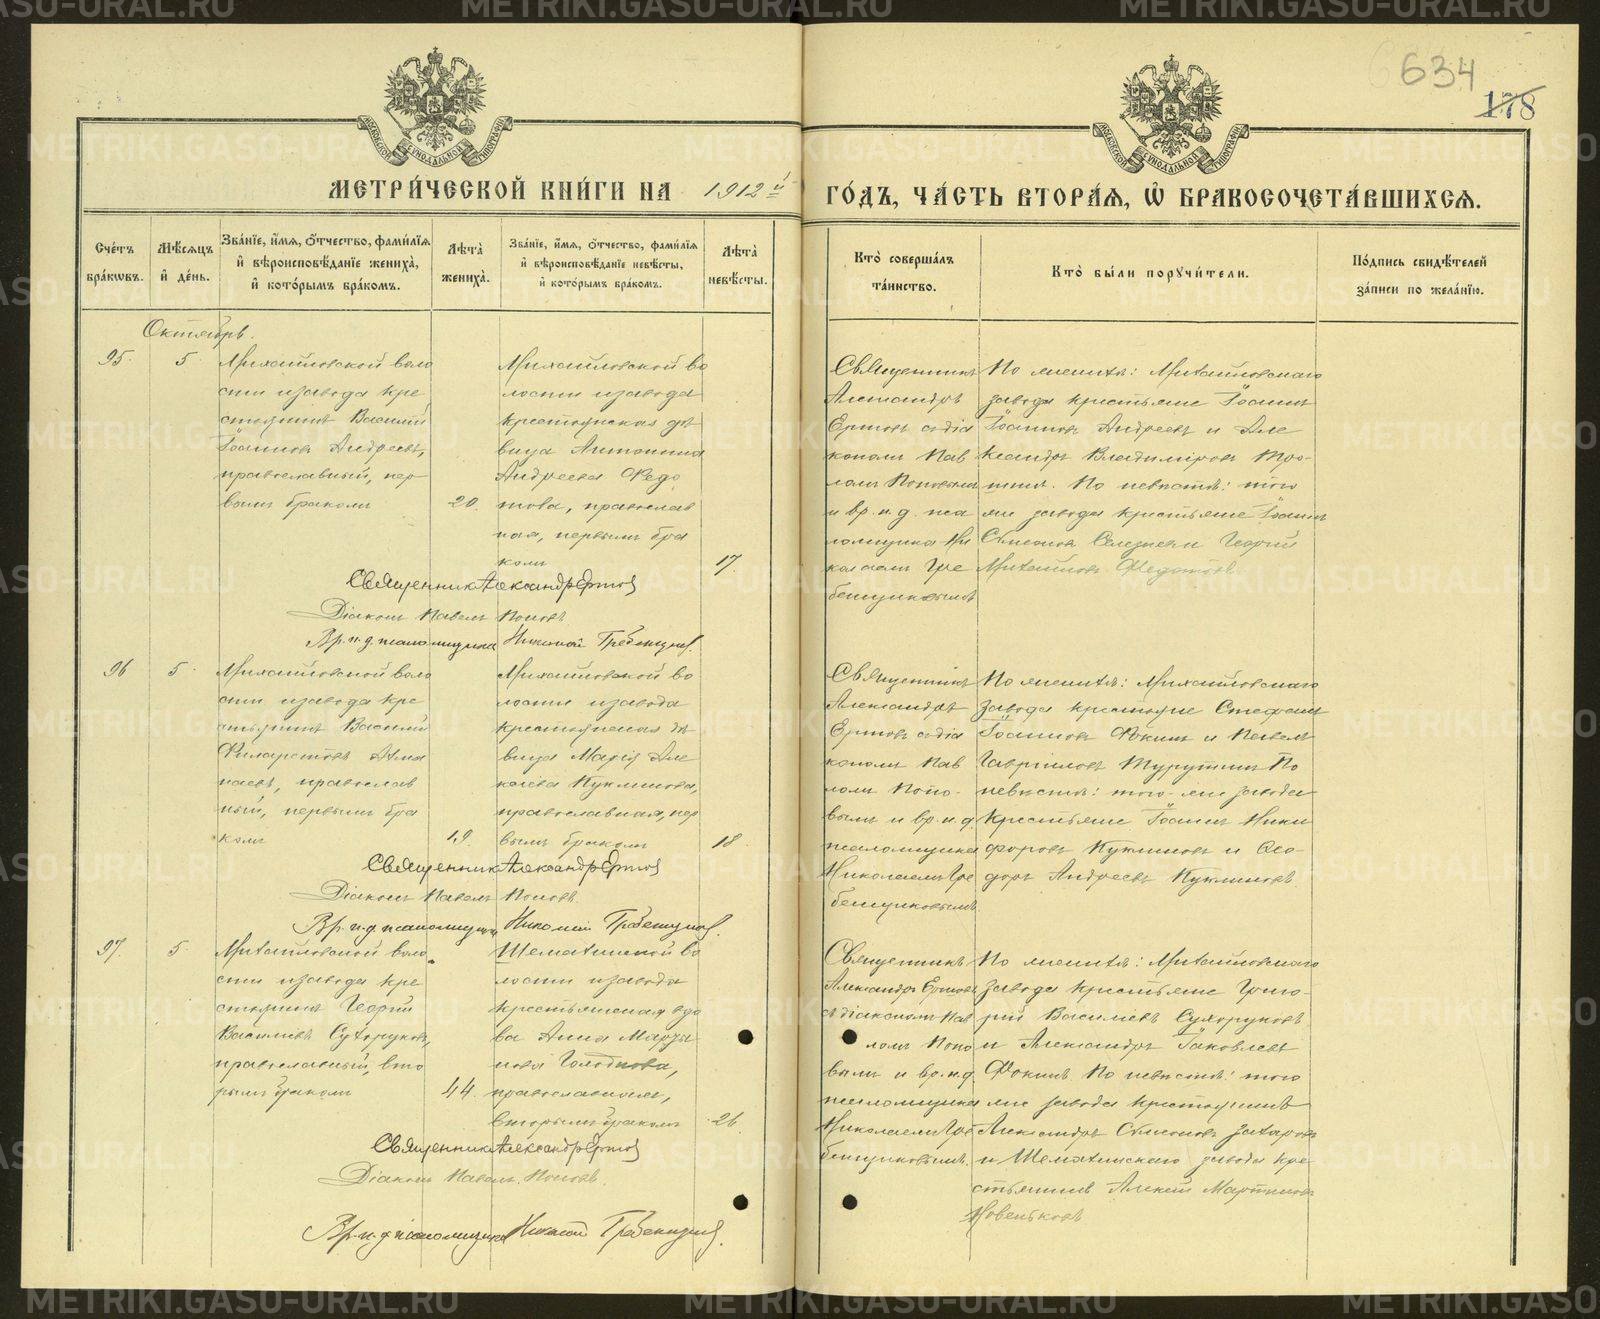 634
178
МОСКОВСКОЙ СУНОДАЛЬНОЙ ТИПОГРАФІИ
МОСКОВСКОЙ СУНОДАЛЬНОЙ ТИПОГРАФІИ
МЕТРИ́ЧЕСКОЙ КНИ́ГИ НА 1912й ГО́ДЪ, ЧА́СТЬ ВТОРА́Я, Ѽ БРАКОСОЧЕТА́ВШИХСЯ.
Сче́тъ бра́кωвъ.
Мѣ́сяцъ и҆ де́нь.
Зва́нїе, и҆́мя, ѻ҆́тчество, фами́лїя и҆ вѣроисповѣ́данїе жениха̀, и҆ кото́рымъ бра́комъ.
Лѣта̀ жениха̀.
Зва́нїе, и҆́мя, ѻ҆́тчество, фами́лїя и҆ вѣроисповѣ́данїе невѣ́сты, и҆ кото́рымъ бра́комъ.
Лѣта̀ невѣ́сты.
Кто̀ соверша́лъ та́инство.
Кто̀ бы́ли порꙋчи́тели.
По́дпись свидѣ́телей за́писи по жела́нїю.
Октябрь.
95.
5.
Михайловской воло
сти и завода кре
стьянинъ Василій
Іоанновъ Андреевъ,
православный, пер-
вымъ бракомъ
20.
Михайловской во
лости и завода
крестьянская дѣ
вица Антонина
Андреева Федо
това, православ
ная, первымъ бра
комъ
17.
Священникъ
Александръ
Ершовъ съ діа
кономъ Пав
ломъ Поповымъ
и вр. и. д. пса
ломщика Ни
колаемъ Гре
бенщиковымъ
По женихѣ: Михайловскаго
завода крестьяне Іоаннъ
Іоанновъ Андреевъ и Але
ксандръ Владиміровъ Тро-
шинъ. По невѣстѣ: того
же завода крестьяне Іоаннъ
Сѵмеоновъ Селезневъ и Георгій
Михайловъ Федотовъ.
Священникъ Александръ Ершовъ
Діаконъ Павелъ Поповъ
Вр. и. д. псаломщика Николай Гребенщиковъ.
96
5.
Михайловской воло
сти и завода кре
стьянинъ Василій
Филаретовъ Ала
паевъ, православ
ный, первымъ бра
комъ
19.
Михайловской во
лости и завода
крестьянская дѣ
вица Марія Але
ксѣева Куклинова,
православная, пер
вымъ бракомъ
18
Священникъ
Александръ
Ершовъ съ діа
кономъ Пав
ломъ Попо-
вымъ и вр. и. д.
псаломщика
Николаемъ Гре
бенщиковымъ
По женихѣ: Михайловскаго
завода крестьяне Стефанъ
Іоанновъ Фокинъ и Павелъ
Гавріиловъ Турутинъ. По
невѣстѣ: того-же завода
крестьяне Іоаннъ Ники
форовъ Куклиновъ и Ѳео
доръ Андреевъ Куклиновъ.
Священникъ Александръ Ершовъ
Діаконъ Павелъ Поповъ.
Вр. и. д. псаломщика Николай Гребенщиковъ.
97.
5.
Михайловской воло
сти и завода кре
стьянинъ Георгій
Васильевъ Сухоруковъ,
православный, вто
рымъ бракомъ
44.
Шемахинской во
лости и завода
крестьянская вдо
ва Анна Марты
нова Голоднова,
православная,
вторымъ бракомъ
26.
Священникъ
Александръ Ершовъ
съ діакономъ Пав
ломъ Попо
вымъ и вр. и. д.
псаломщика
Николаемъ Гре
бенщиковымъ.
По женихѣ: Михайловскаго
завода крестьяне Григо-
рій Васильевъ Сухоруковъ
и Александръ Іаковлевъ
Фокинъ. По невѣстѣ: того
же завода крестьянинъ
Александръ Сѵмеоновъ Захаровъ
и Шемахинскаго завода кре
стьянинъ Алексѣй Мартиновъ
Новеньковъ
Священникъ Александръ Ершовъ
Діаконъ Павелъ Поповъ.
Вр. и. д. псаломщика Николай Гребенщиковъ.
METRIKI.GASO-URAL.RU